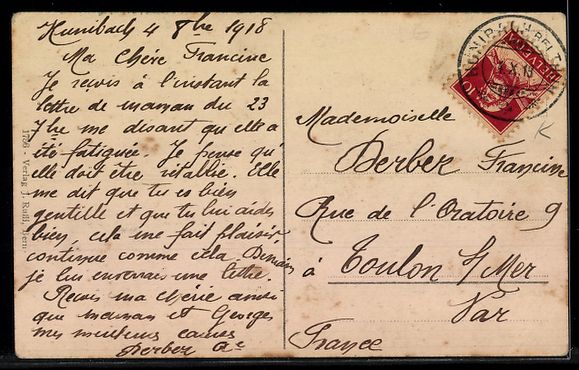 Hunibach 4 8bre 1918
Ma chère Francine
Je reçois à l'instant la
lettre de maman du 23
7bre me disant qu'elle a
été fatiguée. Je pense qu'
elle doit être rétablie. Elle
me dit que tu es bien
gentille et que tu lui aides
bien, cela me fait plaisir,
continue comme cela. Demain
je lui enverrai une lettre.
Reçois ma chérie ainsi
que maman et Georges
mes meilleurs
Derber
1766 - Verlag J.
Mademoiselle
Derber Francine
Rue de l'Oratoire 9
à Toulon s/Mer
Var
France
HELVETIA
10